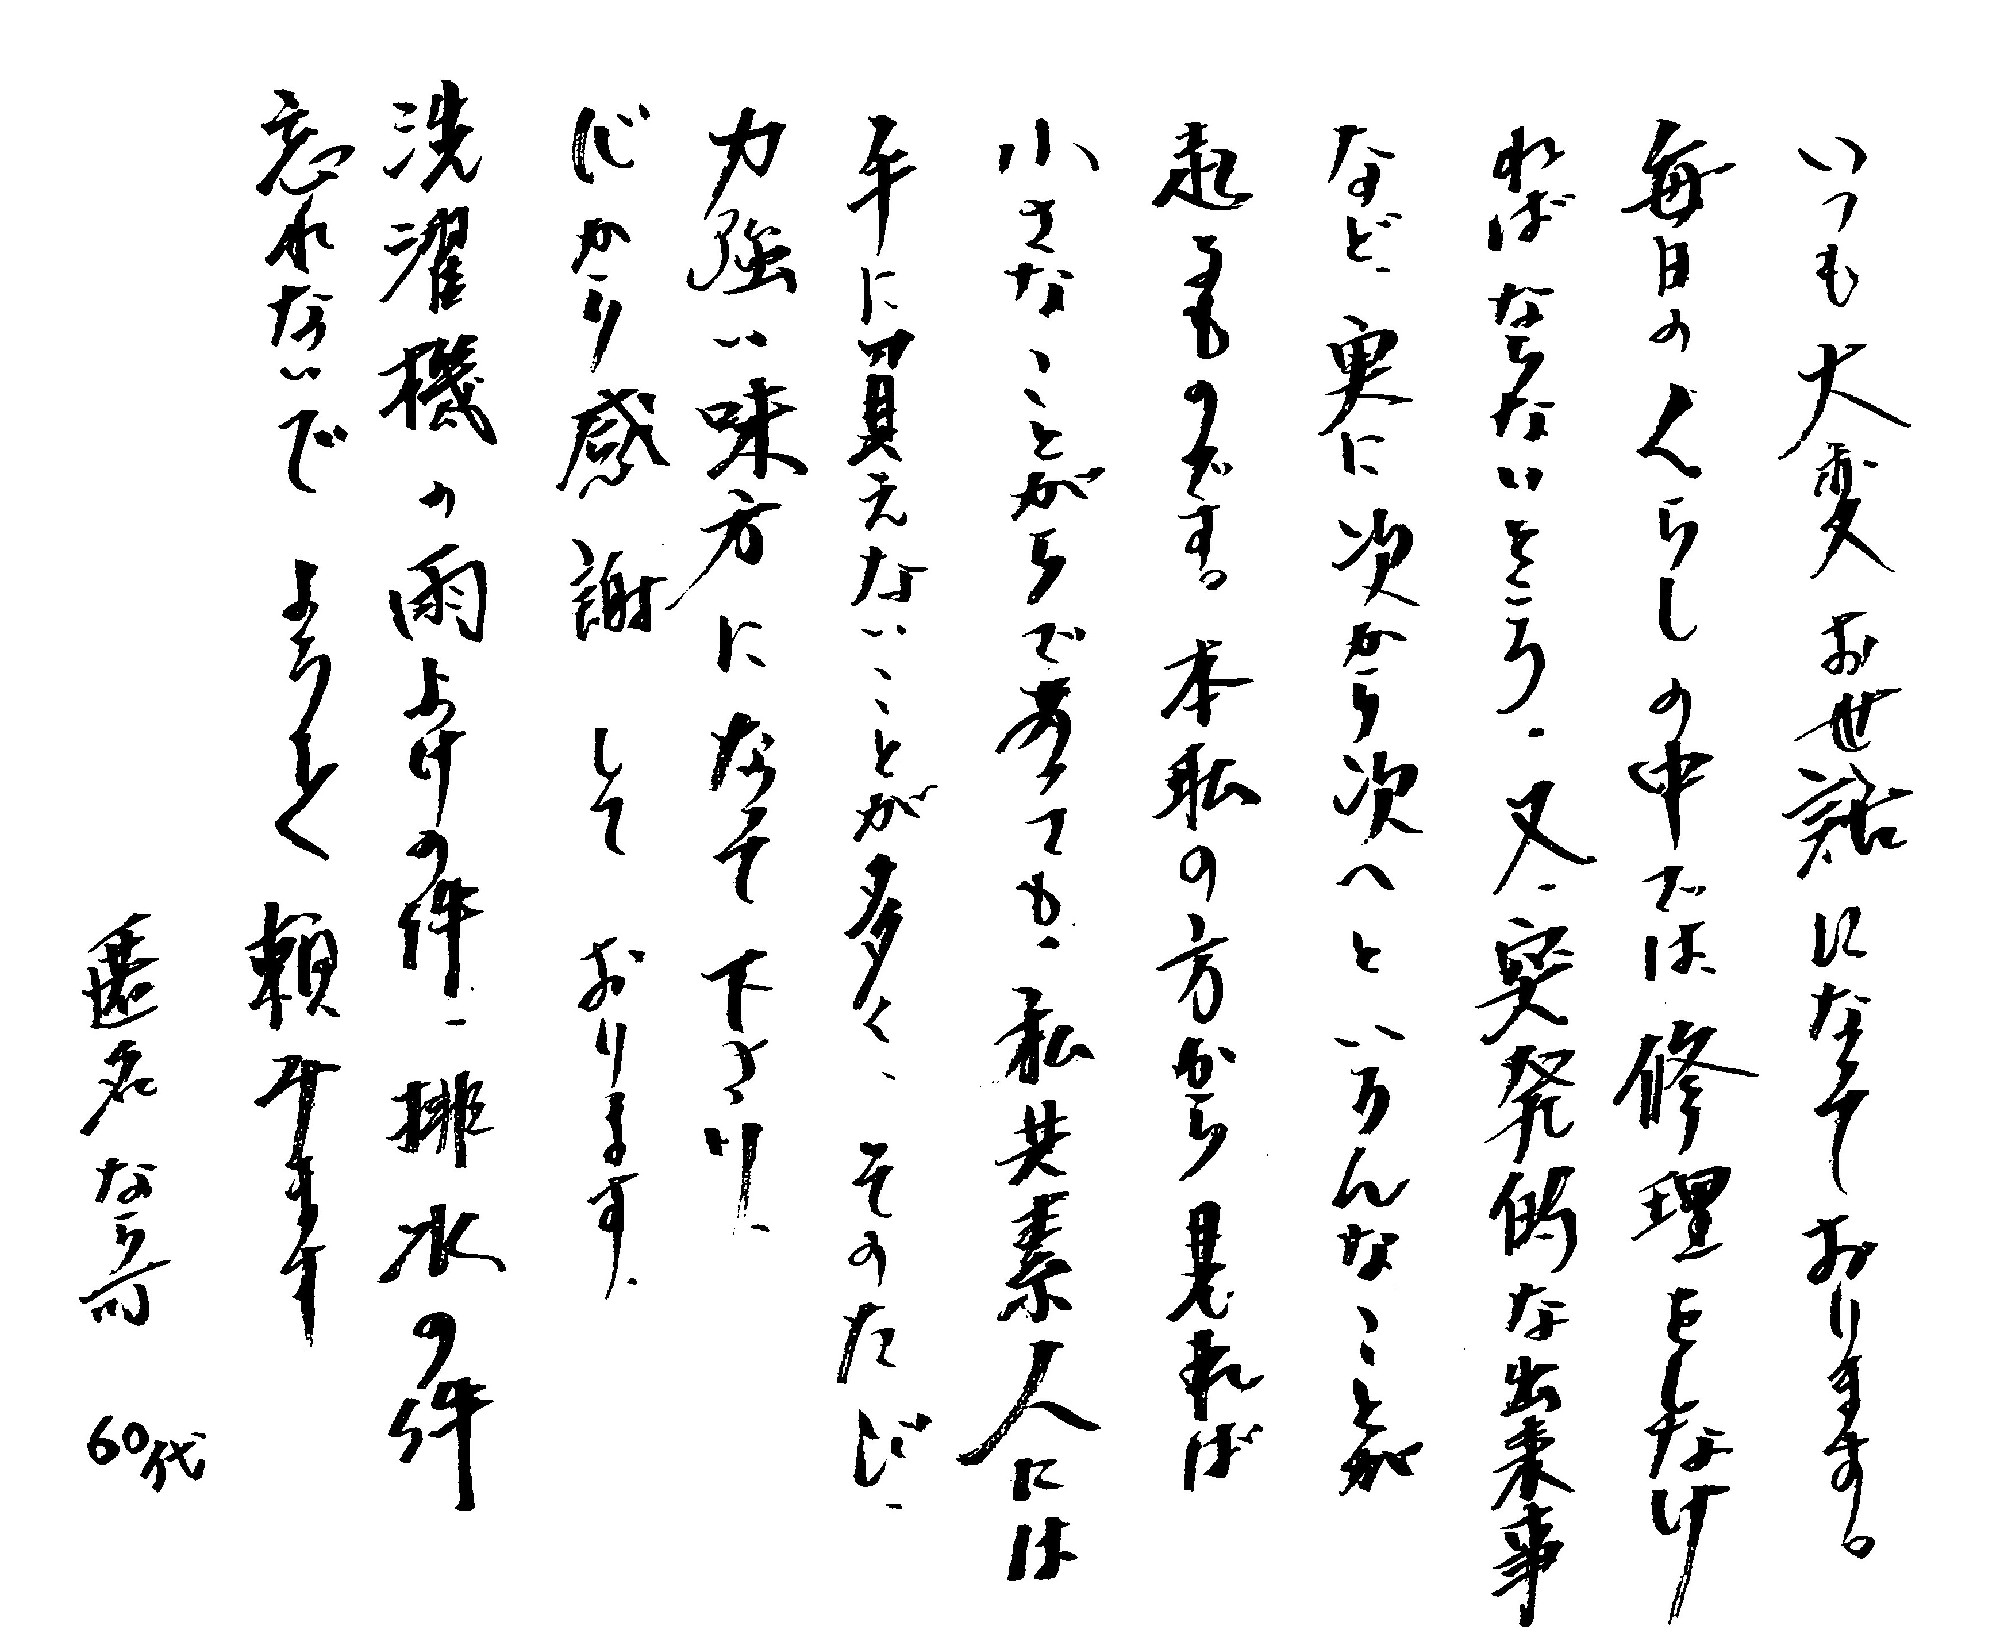 いつも大変お世話になっております。
毎日のくらしの中では、修理をしなけ
ればならないところ、又、突発的な出来事
など、実に次から次へといろんなことが
起るものです。本職の方から見れば
小さなことがらであっても、私共素人には
手に買えないことが多々、そのたび、
力強い味方になって下さり、
心から感謝しております。
洗濯機の雨よけの件、排水の件
忘れないでよろしく頼みます
匿名なら可 60代